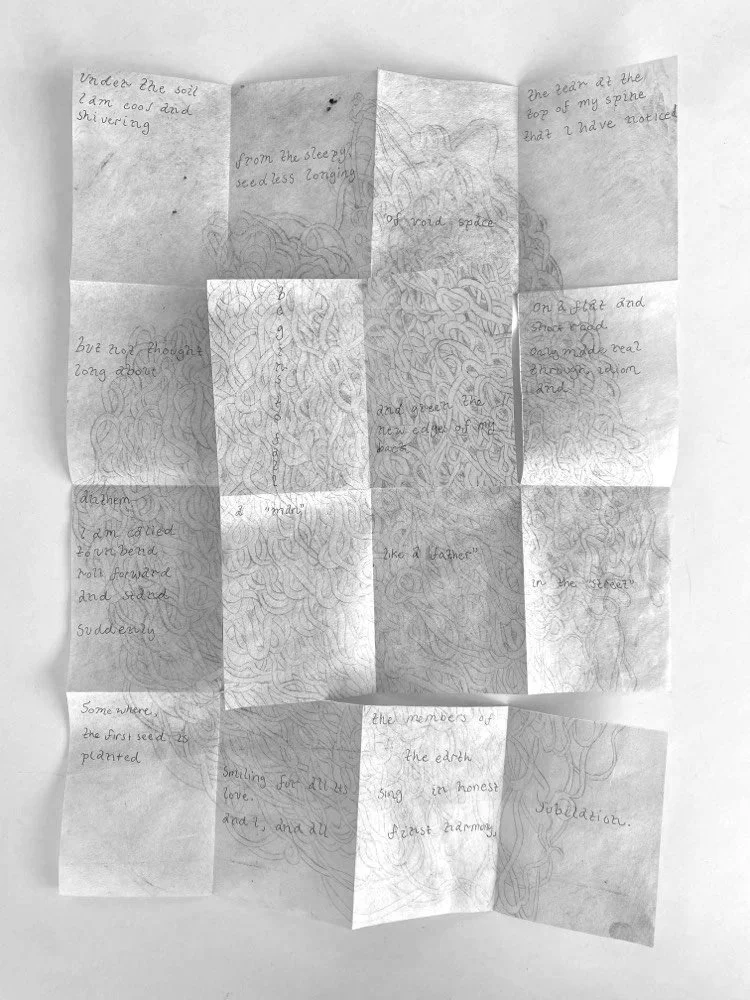 Under the soil
I am cool and
shivering
from the sleepy,
seedless longing
of void space
the tear at the
top of my spine
that I have noticed
but not thought
long about
and green the
new edge of my
back
on a flat and
short road
only made real
through idiom
and
anthem
I am called
to unbend
roll forward
and stand
suddenly
a "man,"
like a father"
in the "street"
Somewhere,
the first seed is
planted
smiling for all its
love.
and I, and all
the members of
the earth
sing in honest
first harmony,
jubilation.